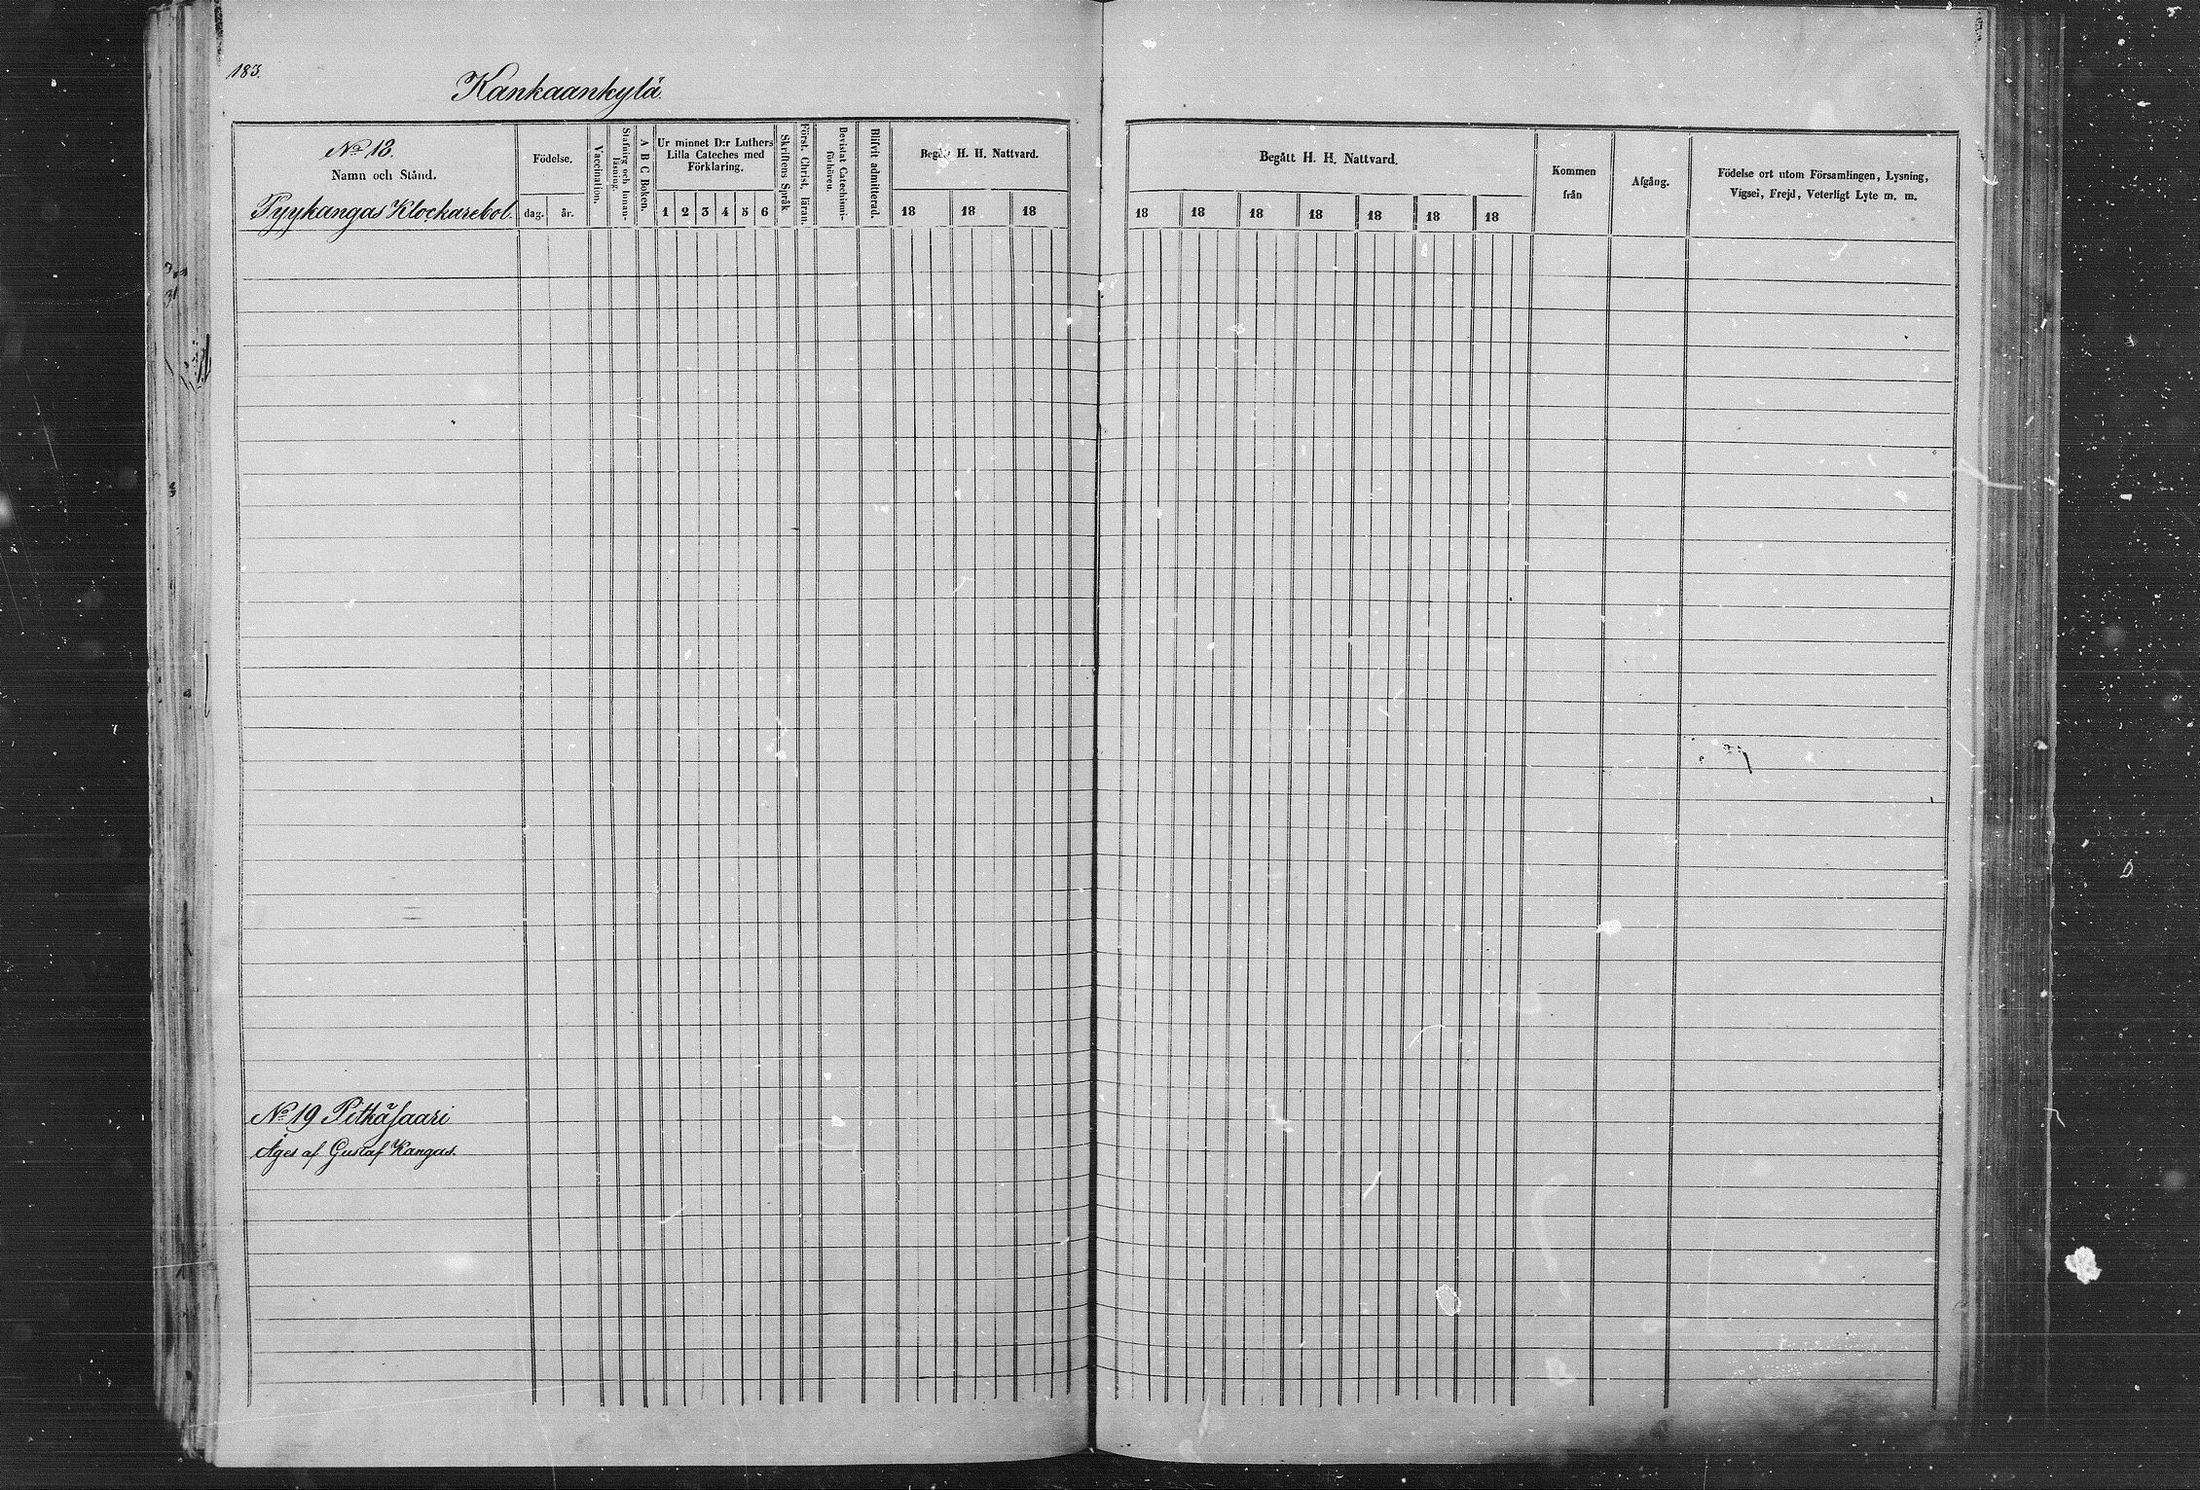 183.
Kankaankylä.
No 18.
Namn och Stånd.
Pyykangas Klockarebol.
Födelse.
dag. år.
Vaccination.
Stafning och Innan-
läsning.
A B C Boken.
Ur minnet D:r Luthers
Lilla Cateches med
Förklaring.
1 2 3 4 5 6
Skriftens Språk
Först. Christ. läran.
Bevistat Catechismi-
förhören.
Blifvit admitterad.
Begått H. H. Nattvard.
18 18 18
Begått H. H. Nattvard.
18 18 18 18 18 18 18
Kommen
från
Afgång.
Födelse ort utom Församlingen, Lysning,
Vigsel, Frejd, Veterligt Lyte m. m.
No 19 Pitkäsaari
Äges af Gustaf Kangas.